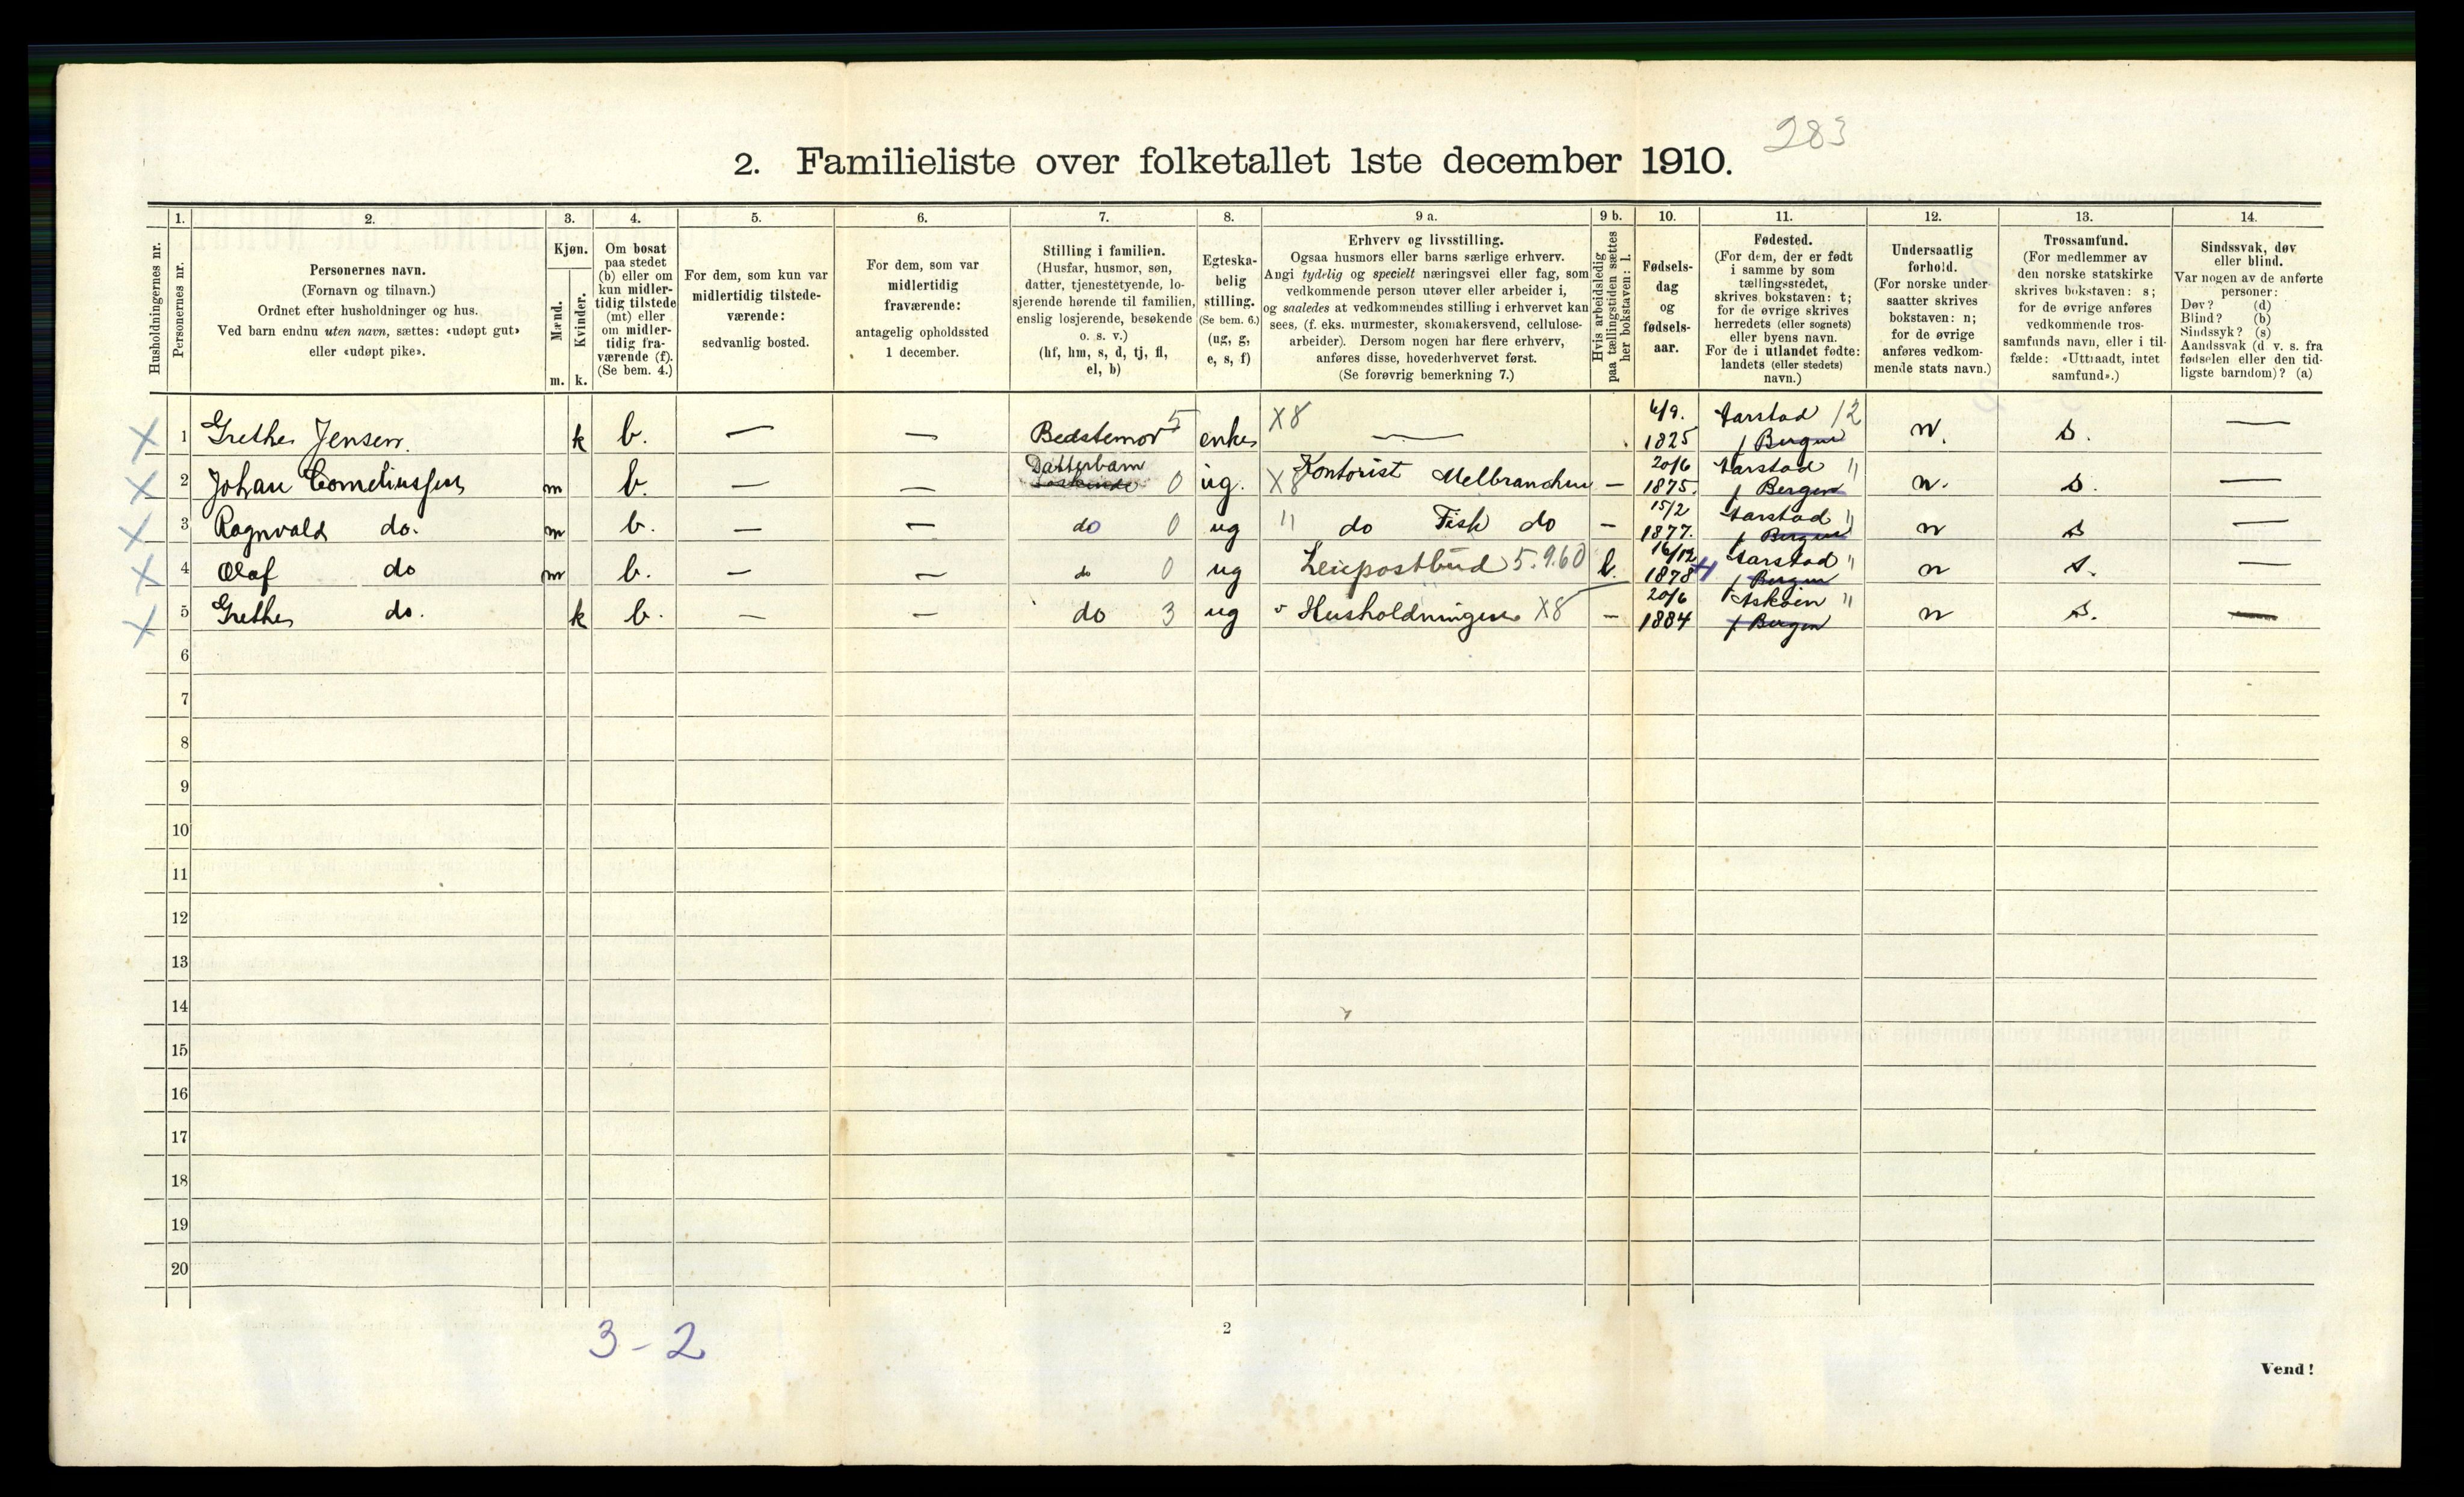 283
2. Familieliste over folketallet 1ste december 1910.
Husholdningernes nr.
1.
Personernes nr.
2.
Personernes navn.
(Fornavn og tilnavn.)
Ordnet efter husholdninger og hus.
Ved barn endnu uten navn, sættes: «udøpt gut»
eller «udøpt pike».
3.
Kjøn.
Mænd.
Kvinder.
m. k.
4.
Om bosat
paa stedet
(b) eller om
kun midler-
tidig tilstede
(mt) eller
om midler-
tidig fra-
værende (f).
(Se bem. 4.)
5.
For dem, som kun var
midlertidig tilstede-
værende:
sedvanlig bosted.
6.
For dem, som var
midlertidig
fraværende:
antagelig opholdssted
1 december.
7.
Stilling i familien.
(Husfar, husmor, søn,
datter, tjenestetyende, lo-
sjerende hørende til familien,
enslig losjerende, besøkende
o. s. v.)
(hf, hm, s, d, tj, fl,
el, b)
8.
Egteska-
belig
stilling.
(Se bem. 6.)
(ug, g,
e, s, f)
9 a.
Erhverv og livsstilling.
Ogsaa husmors eller barns særlige erhverv.
Angi tydelig og specielt næringsvei eller fag, som
vedkommende person utøver eller arbeider i,
og saaledes at vedkommendes stilling i erhvervet kan
sees, (f. eks. murmester, skomakersvend, cellulose-
arbeider). Dersom nogen har flere erhverv,
anføres disse, hovederhvervet først.
(Se forøvrig bemerkning 7.)
9 b.
Hvis arbeidsledig
paa tællingstiden sættes
her bokstaven: l.
10.
Fødsels-
dag
og
fødsels-
aar.
11.
Fødested.
(For dem, der er født
i samme by som
tællingsstedet,
skrives bokstaven: t;
for de øvrige skrives
herredets (eller sognets)
eller byens navn.
For de i utlandet fødte:
landets (eller stedets)
navn.)
12.
Undersaatlig
forhold.
(For norske under
saatter skrives
bokstaven: n;
for de øvrige
anføres vedkom-
mende stats navn.)
13.
Trossamfund.
(For medlemmer av
den norske statskirke
skrives bokstaven: s;
for de øvrige anføres
vedkommende tros-
samfunds navn, eller i til-
fælde: «Uttraadt, intet
samfund».)
14.
Sindssvak, døv
eller blind.
Var nogen av de anførte
personer:
Døv? (d)
Blind? (b)
Sindssyk? (s)
Aandssvak (d v. s. fra
fødselen eller den tid-
ligste barndom)? (a)
X 1 Grethe Jensen. k b. — — Bedstemor 5 enke X8 — 6/9. 1825 Aarstad 12 f Bergen n. s. —
X 2 Johan Corneliussen m b. — — Datterbarn 0 ug. X8 Kontorist Melbranchen — 20/6 1875. Aarstad " f Bergen n. s. —
X 3 Ragnvald do. m b. — — do 0 ug " do Fisk do — 15/2 1877. Aarstad " f Bergen n s —
X 4 Olaf do m b. — — do 0 ug Leiepostbud 5.9.60 l. 16/12 1878 Aarstad " f Bergen n s. —
X 5 Grethe do. k b. — — do 3 ug v Husholdningen X8 — 20/6 1884 Askøen " f Bergen n s. —
6
7
8
9
10
11
12
13
14
15
16
17
18
19
20
3 - 2
2
Vend!